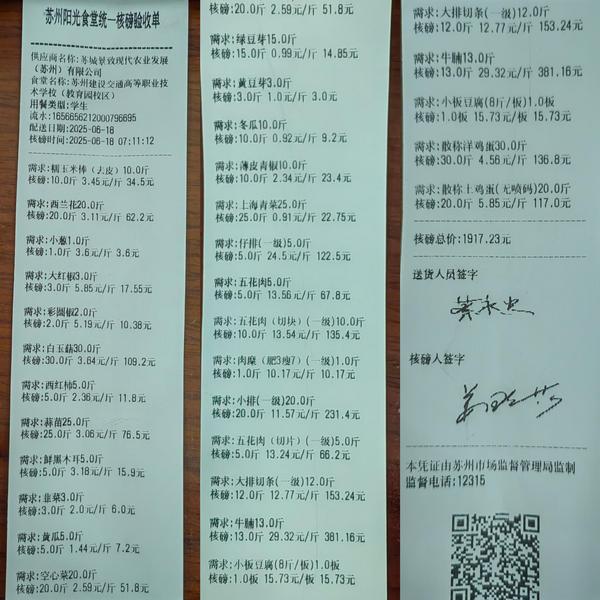 苏州阳光食堂统一核磅验收单
供应商名称:苏城景致现代农业发展
（苏州）有限公司
食堂名称:苏州建设交通高等职业技
术学校（教育园校区）
用餐类型:学生
流水:1656656212000796695
配送日期:2025-06-18
核磅时间:2025-06-18 07:11:12
需求:糯玉米棒（去皮）10.0斤
核磅:10.0斤 3.45元/斤 34.5元
需求:西兰花20.0斤
核磅:20.0斤 3.11元/斤 62.2元
需求:小葱1.0斤
核磅:1.0斤 3.6元/斤 3.6元
需求:大红椒3.0斤
核磅:3.0斤 5.85元/斤 17.55元
需求:彩圆椒2.0斤
核磅:2.0斤 5.19元/斤 10.38元
需求:白玉菇30.0斤
核磅:30.0斤 3.64元/斤 109.2元
需求:西红柿5.0斤
核磅:5.0斤 2.36元/斤 11.8元
需求:蒜苗25.0斤
核磅:25.0斤 3.06元/斤 76.5元
需求:鲜黑木耳5.0斤
核磅:5.0斤 3.18元/斤 15.9元
需求:韭菜3.0斤
核磅:3.0斤 2.0元/斤 6.0元
需求:黄瓜5.0斤
核磅:5.0斤 1.44元/斤 7.2元
需求:空心菜20.0斤
核磅:20.0斤 2.59元/斤 51.8元
核磅:20.0斤 2.59元/斤 51.8元
需求:绿豆芽15.0斤
核磅:15.0斤 0.99元/斤 14.85元
需求:黄豆芽3.0斤
核磅:3.0斤 1.0元/斤 3.0元
需求:冬瓜10.0斤
核磅:10.0斤 0.92元/斤 9.2元
需求:薄皮青椒10.0斤
核磅:10.0斤 2.34元/斤 23.4元
需求:上海青菜25.0斤
核磅:25.0斤 0.91元/斤 22.75元
需求:仔排(一级)5.0斤
核磅:5.0斤 24.5元/斤 122.5元
需求:五花肉5.0斤
核磅:5.0斤 13.56元/斤 67.8元
需求:五花肉（切块）(一级)10.0斤
核磅:10.0斤 13.54元/斤 135.4元
需求:肉糜（肥3瘦7）(一级)1.0斤
核磅:1.0斤 10.17元/斤 10.17元
需求:小排(一级)20.0斤
核磅:20.0斤 11.57元/斤 231.4元
需求:五花肉（切片）(一级)5.0斤
核磅:5.0斤 13.24元/斤 66.2元
需求:大排切条(一级)12.0斤
核磅:12.0斤 12.77元/斤 153.24元
需求:牛腩13.0斤
核磅:13.0斤 29.32元/斤 381.16元
需求:小板豆腐(8斤/板)1.0板
核磅:1.0板 15.73元/板 15.73元
需求:大排切条(一级)12.0斤
核磅:12.0斤 12.77元/斤 153.24元
需求:牛腩13.0斤
核磅:13.0斤 29.32元/斤 381.16元
需求:小板豆腐(8斤/板)1.0板
核磅:1.0板 15.73元/板 15.73元
需求:散称洋鸡蛋30.0斤
核磅:30.0斤 4.56元/斤 136.8元
需求:散称土鸡蛋(无喷码)20.0斤
核磅:20.0斤 5.85元/斤 117.0元
核磅总价:1917.23元
送货人员签字
核磅人签字
本凭证由苏州市场监督管理局监制
监督电话:12315